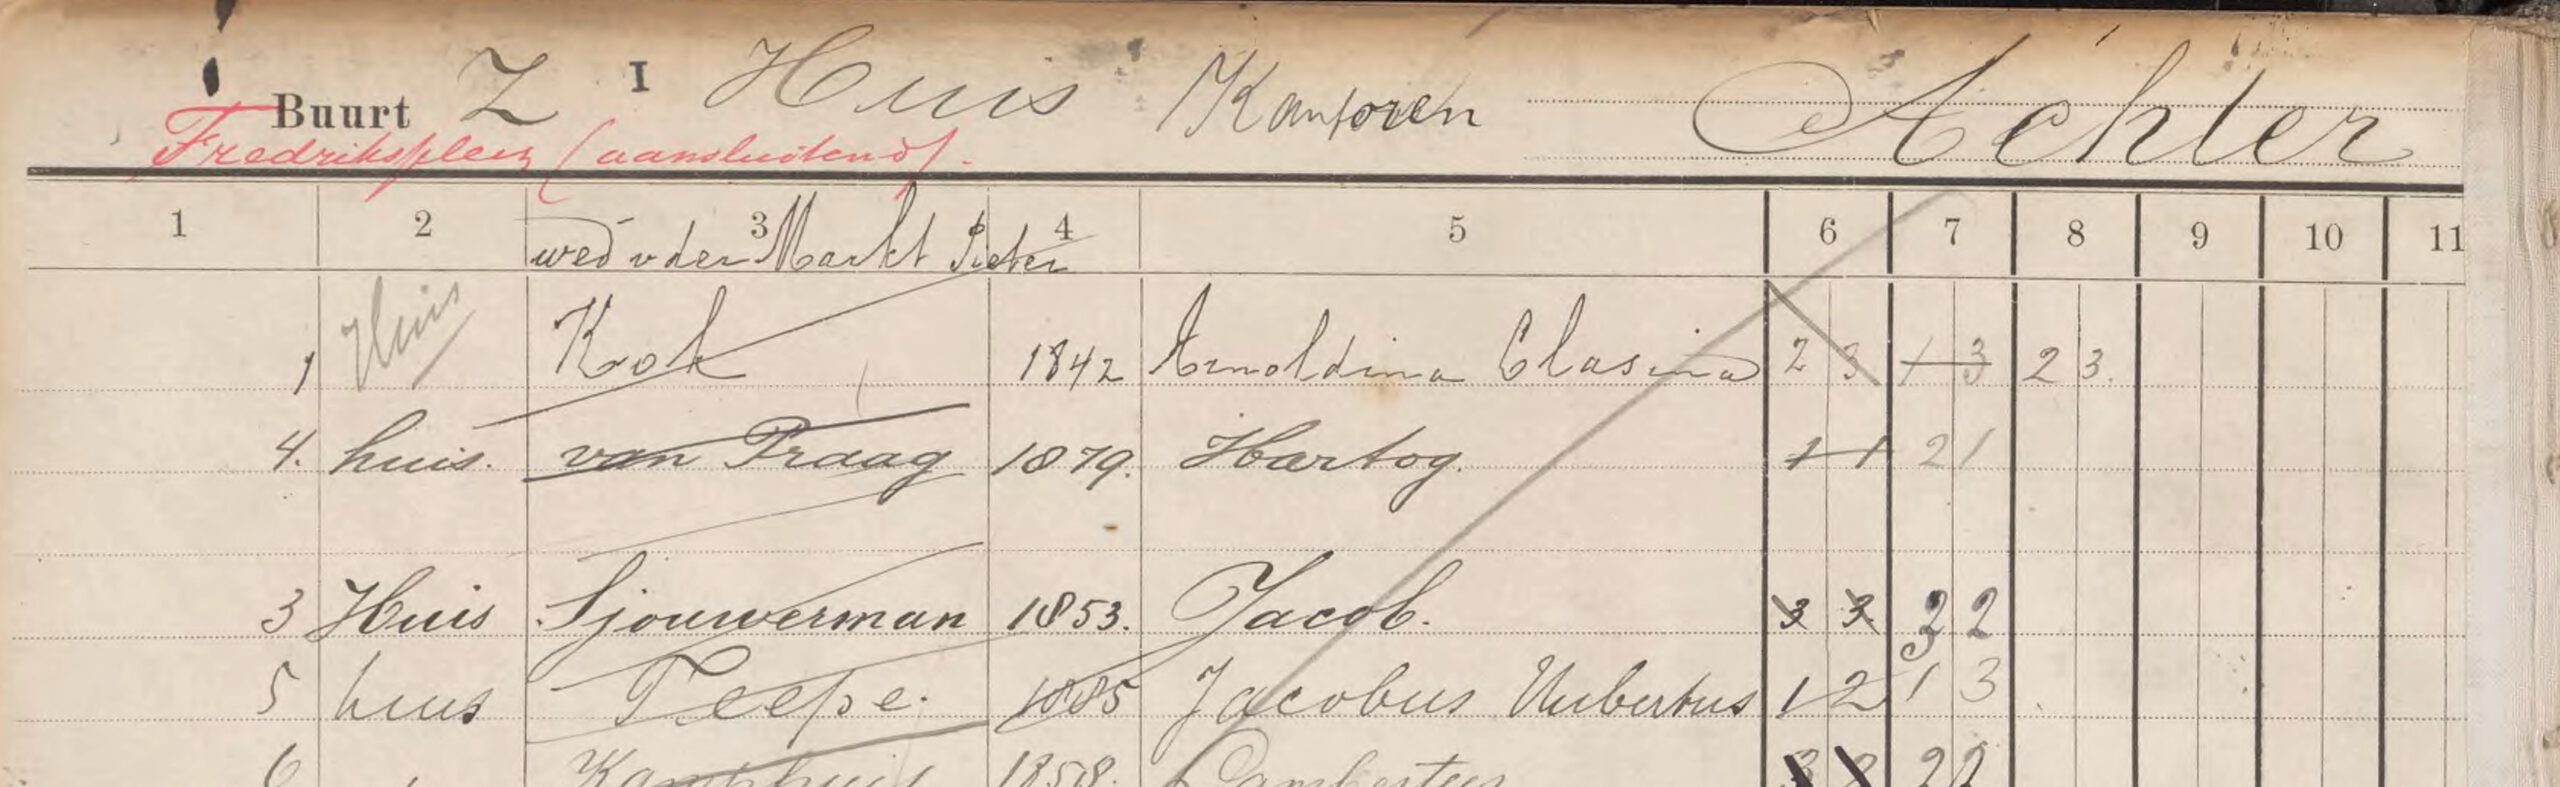 Buurt Z I Huis Kantoren Achter
Frederiksplein (aansluitend).
1 2 3 4 5 6 7 8 9 10 11
wed v der Markt Pieter
1 Huis Kok 1842 Arnoldina Clasina 2 3 1 3 2 3.
4. huis. van Praag 1879. Hartog. 1 1 2 1
3 Huis Sjouwerman 1853. Jacob. 3 3 3 2 2
5 huis Teepe. 1885 Jacobus Hubertus 1 2 1 3
6 Kamphuis 1858. Lambertus 3 2 2 2